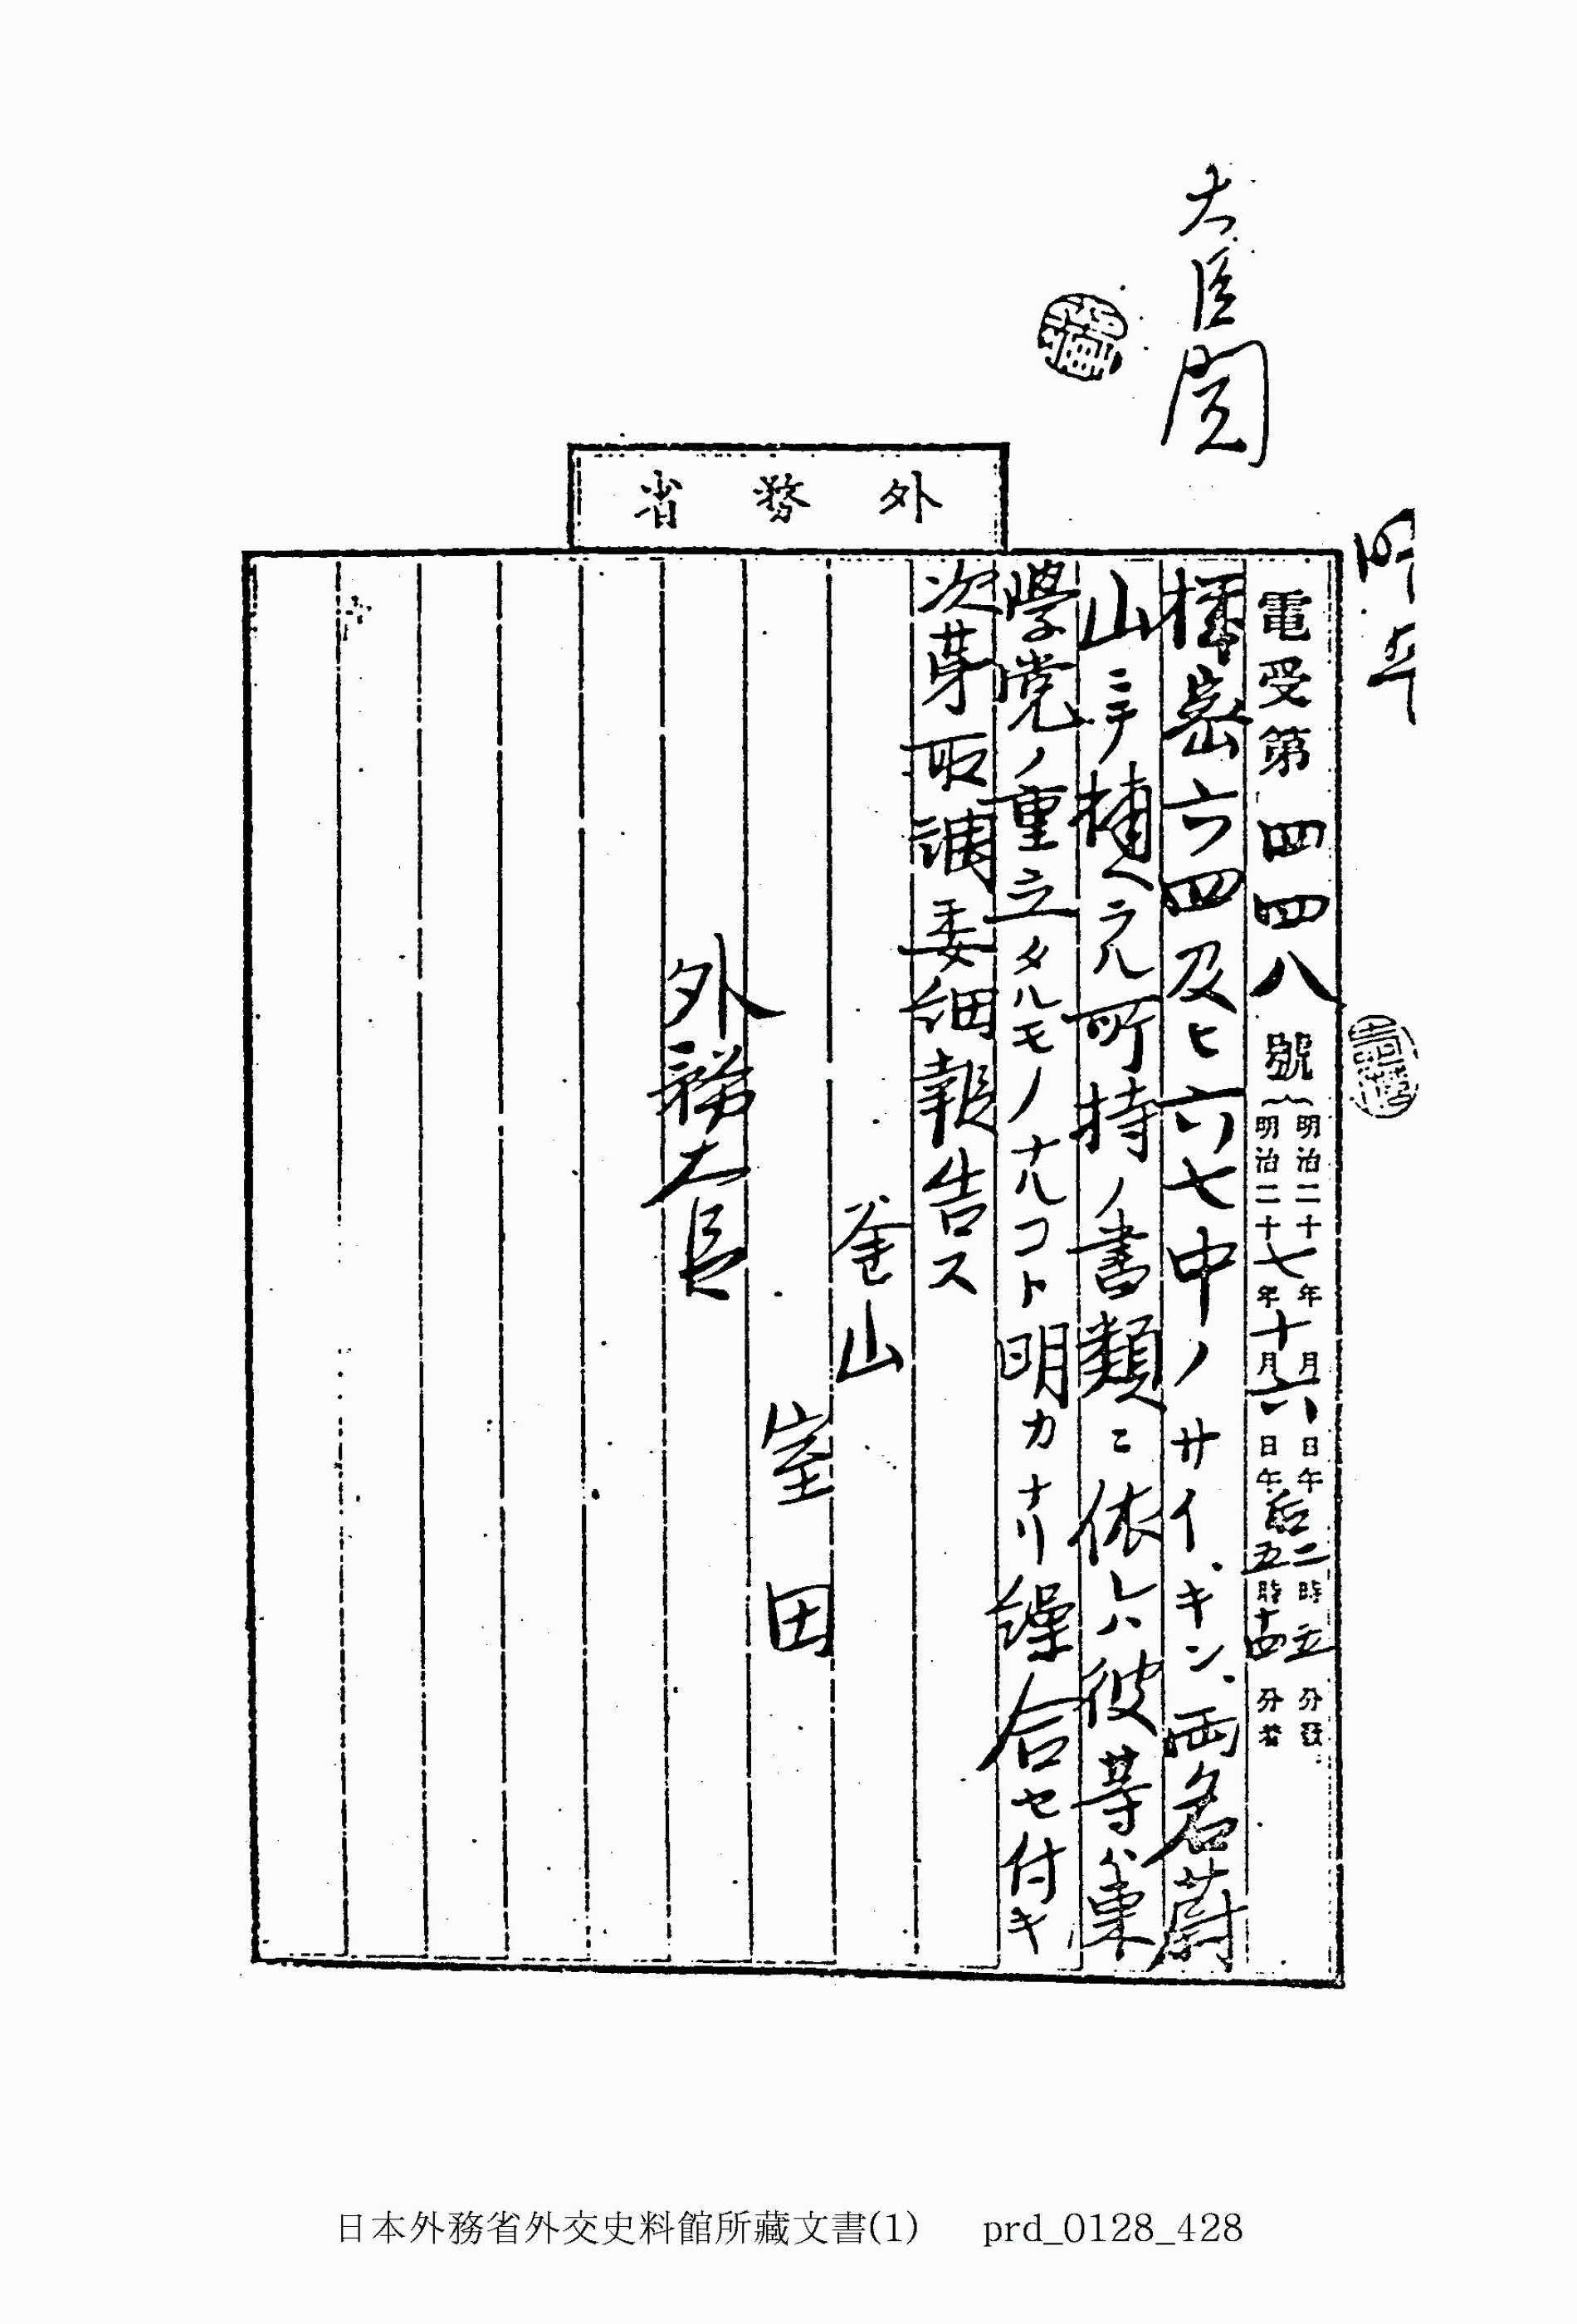 大臣閲
外務省
電受第四四八號
明治二十 年 月 日午 二時五 分發
明治二十七年十月六日午后五時十四分着
機密六四及ヒ六七中ノサイ、キン、両名蔚
山ニテ捕ヘラル所持ノ書類ニ依レハ彼等ハ東
學党ノ重立タルモノナルコト明カナリ 合セ付キ
次芽取調委細報告ス
釜山
室田
外務大臣
日本外務省外交史料館所藏文書(1) prd_0128_428